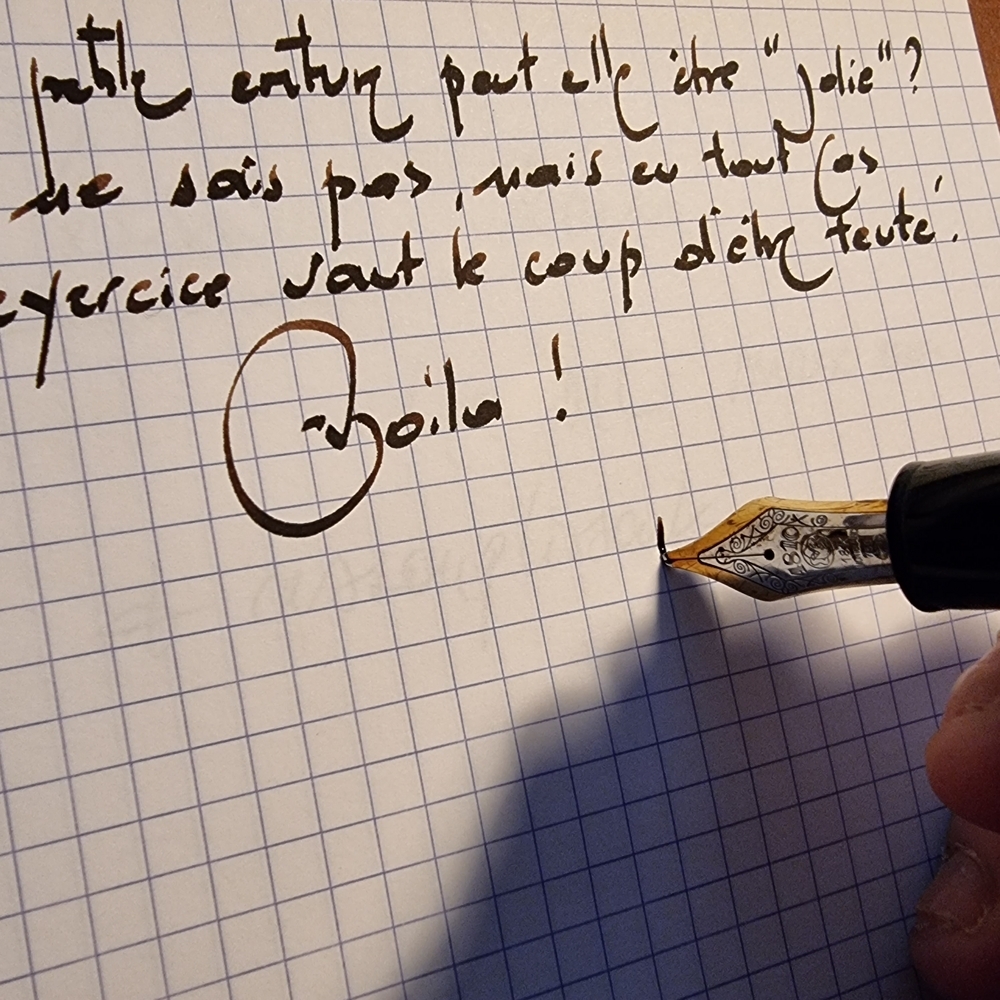 petite écriture peut elle être "jolie"?
ne sais pas, mais en tout cas
exercice vaut le coup d'être tenté.
Voila !
4810